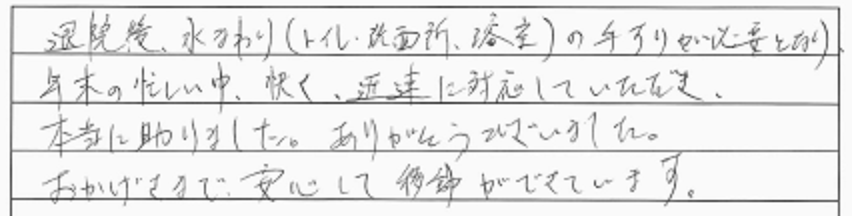 退院後、水まわり(トイレ・洗面所、浴室)の手すりが必要となり、
年末の忙しい中、快く、迅速に対応していただき、
本当に助りました。ありがとうございました。
おかげさまで、安心して ができています。